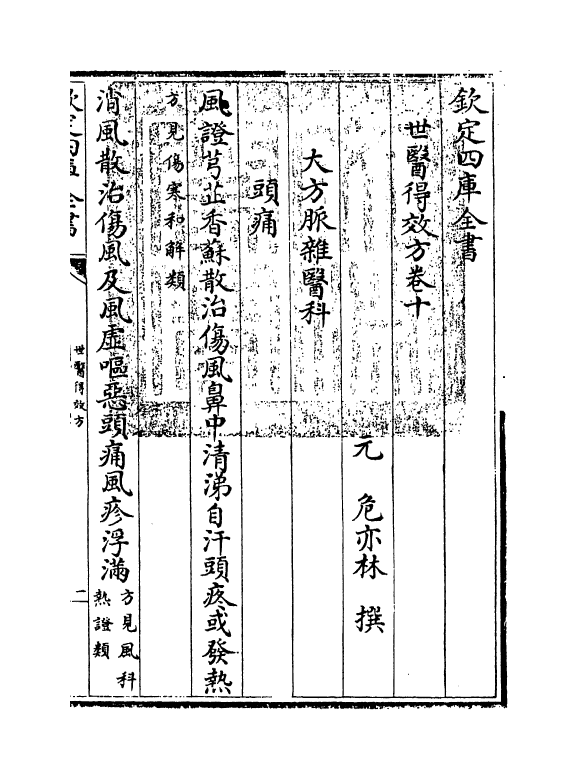 欽定四庫全書
世醫得效方卷十
元 危亦林 撰
大方脈雜醫科
頭痛
風證芎芷香蘇散治傷風鼻中清涕自汗頭疼或發熱
方見傷寒和解類
消風散治傷風及風虛嘔惡頭痛風疹浮滿方見風科
熱證類
世醫得效方